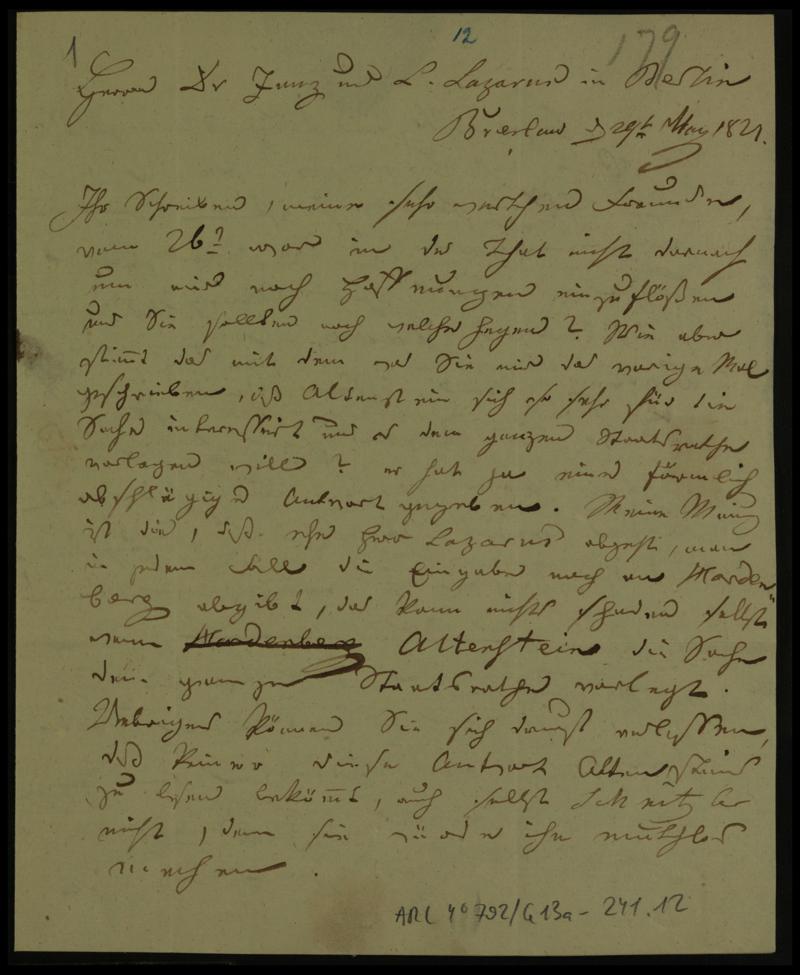 1
12
179
Herrn Dr Zunz und L. Lazarus in Berlin
Breslau d 29t May 1821.
Ihr Schreiben, meine sehr werthen Freunde,
vom 26t war in der That nicht darnach
um mir noch Hoffnungen einzuflößen
und Sie sollten noch welche hegen? Wie aber
stimmt das mit dem was Sie mir das vorige Mal
geschrieben, daß Altenstein sich so sehr für die
Sache interessirt und es dem ganzen Staatsrathe
vorlegen will? er hat ja eine förmlich
abschlägige Antwort gegeben. Meine Meinung
ist die, daß ehe Herr Lazarus abgeht, man
in jedem Falle die Eingabe noch an Harden-
berg abgibt, das kann nichts schaden selbst
wenn Hardenberg Altenstein die Sache
dem ganzen Staatsrathe vorlegt.
Uebrigens können Sie sich darauf verlassen,
daß keiner diese Antwort Altensteins
zu lesen bekömmt, auch selbst Schnitzler
nicht, denn sie würde ihn muthlos
machen.
ARC 4° 792/G13a-241.12